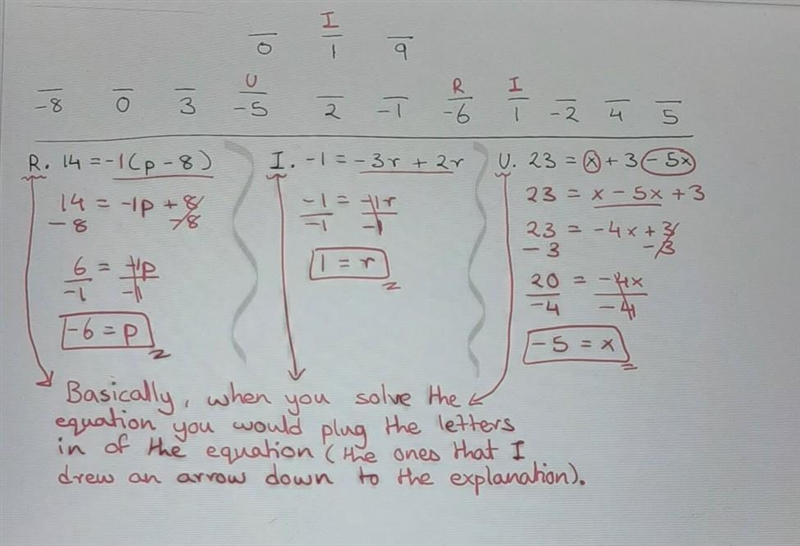 I
0 1 9
U R I
-8 0 3 -5 2 -1 -6 1 -2 4 5
R. 14 = -1(p - 8) I. -1 = -3r + 2r U. 23 = x + 3 - 5x
14 = -1p + 8 -1 = -1r 23 = x - 5x + 3
-8 -8 -1 -1 23 = -4x + 3
6 = -1p 1 = r -3 -3
-1 -1 20 = -4x
-6 = p -4 -4
-5 = x
Basically, when you solve the
equation you would plug the letters
in of the equation (the ones that I
drew an arrow down to the explanation).